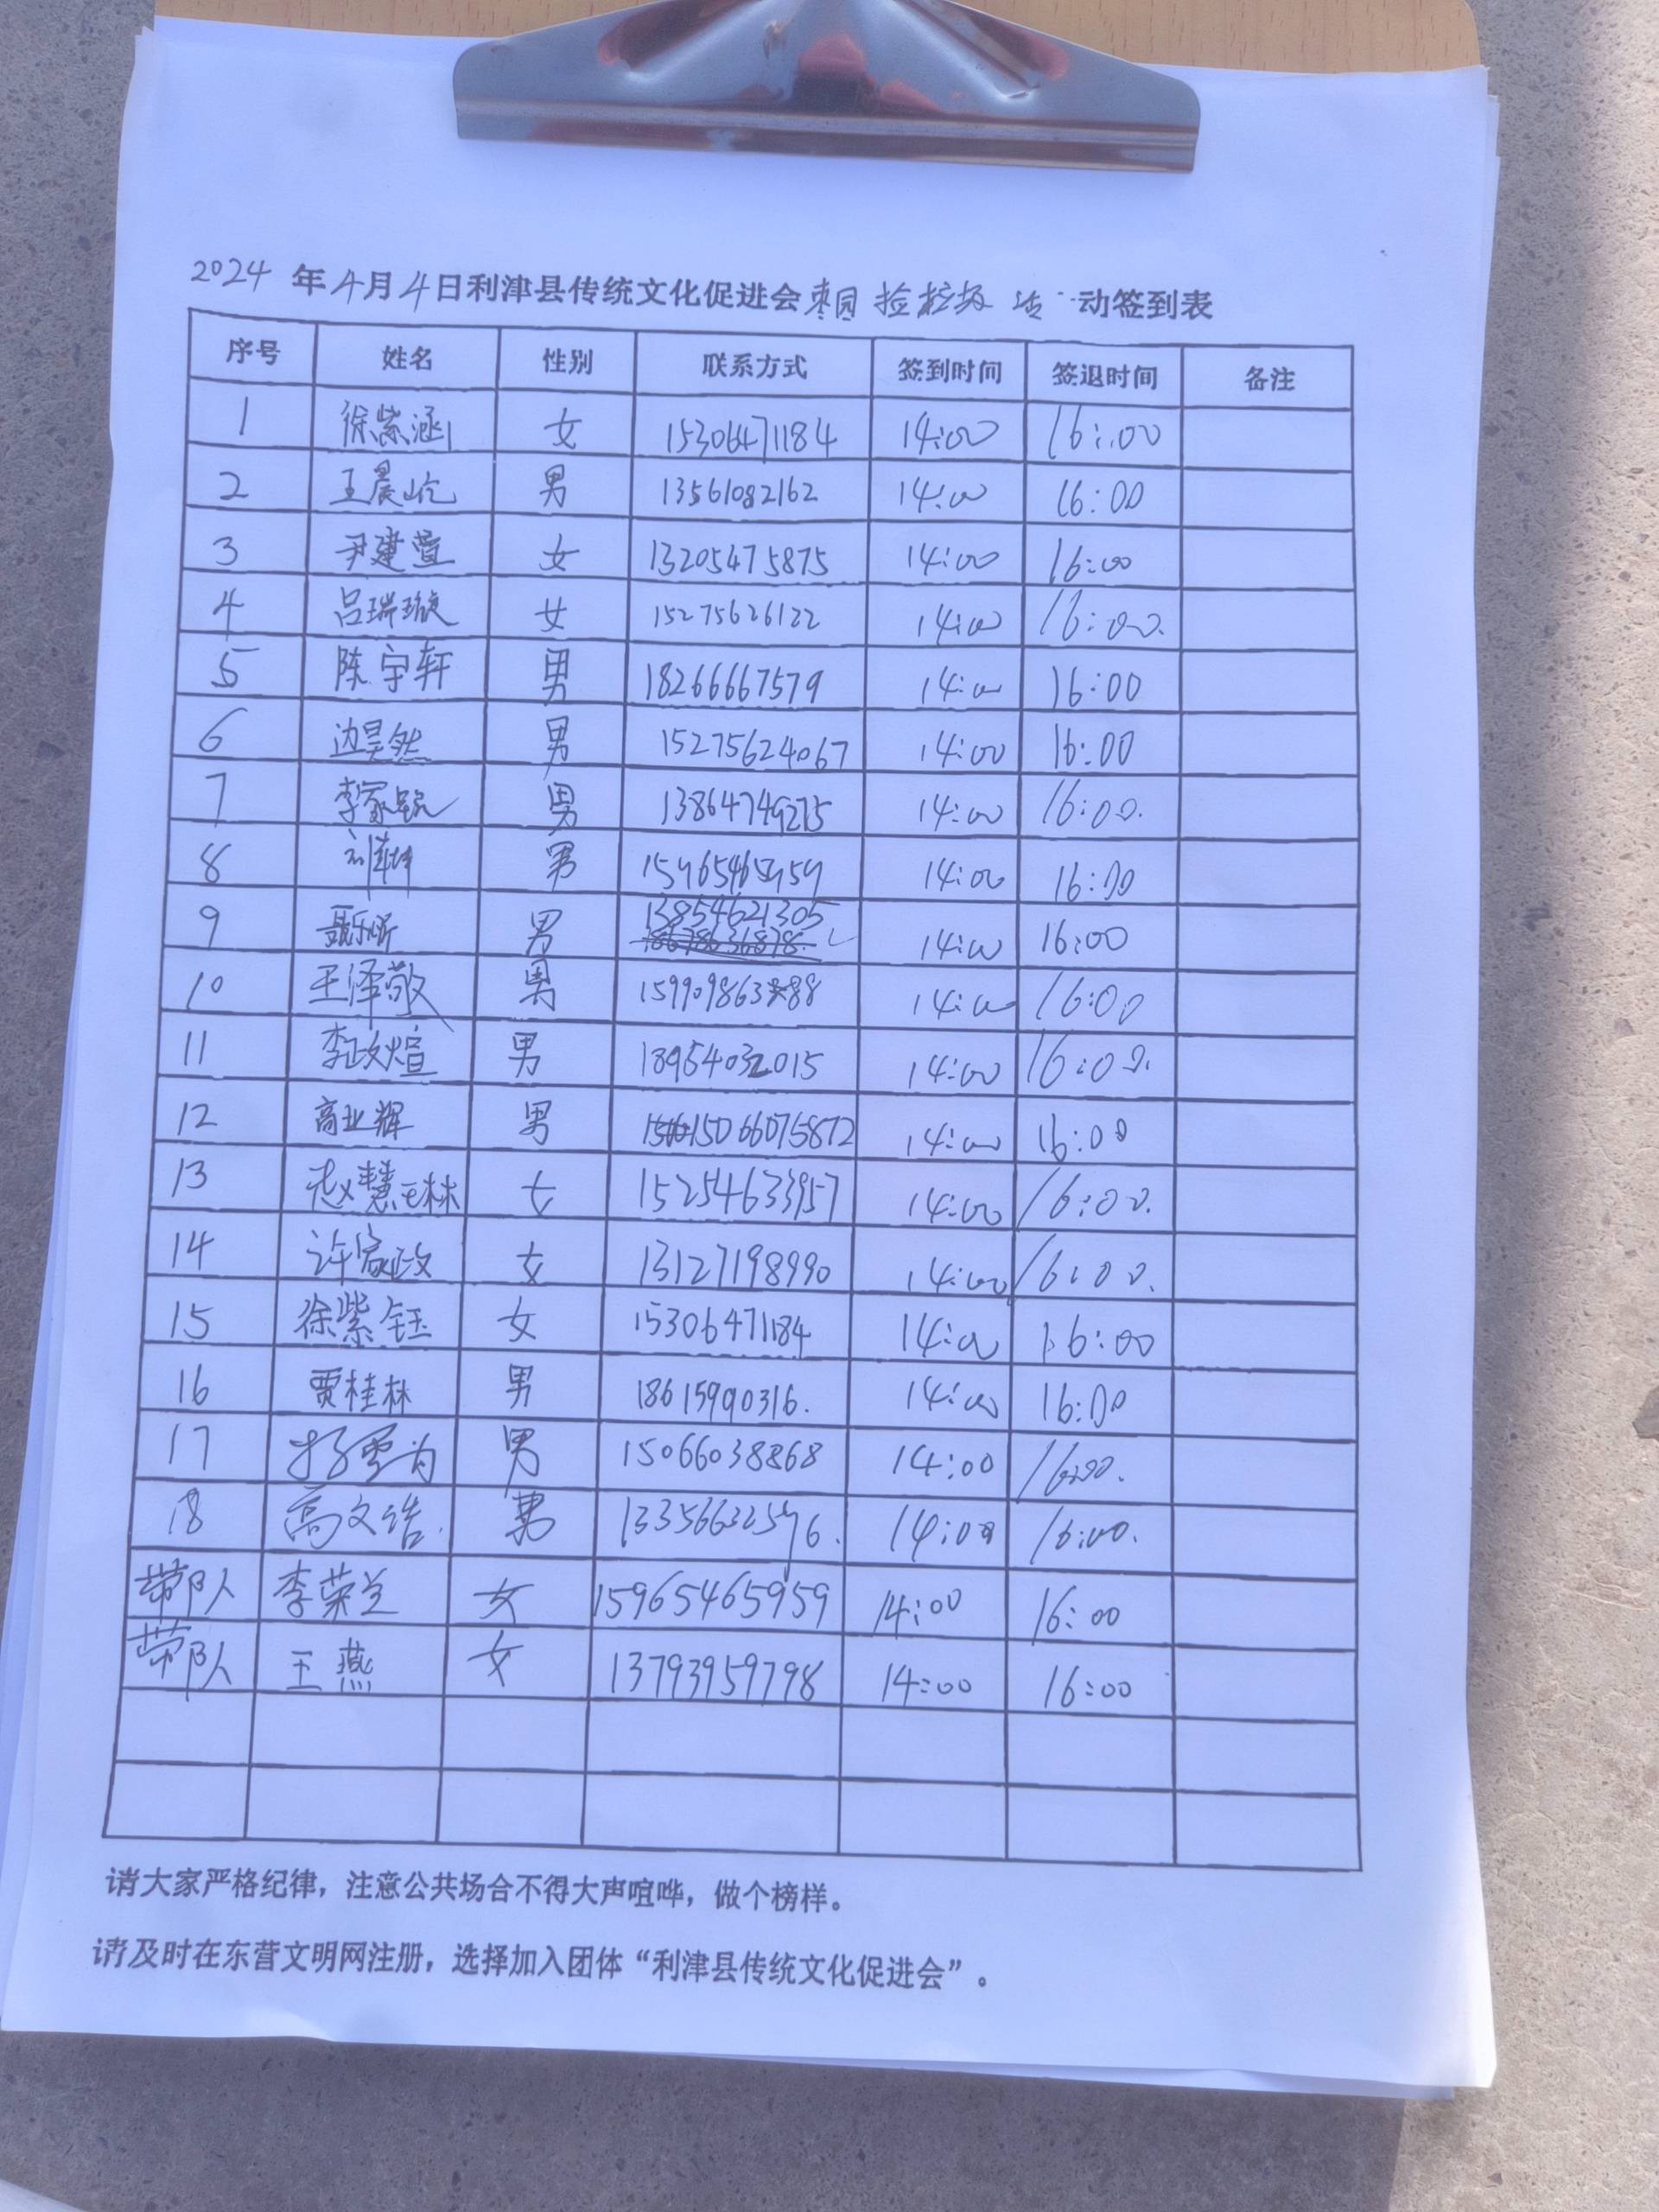 2024年4月4日利津县传统文化促进会枣园捡垃圾活动签到表
序号 姓名 性别 联系方式 签到时间 签退时间 备注
1 徐紫涵 女 15306471184 14:00 16:00
2 王晨屹 男 13561082162 14:00 16:00
3 尹建萱 女 13205475875 14:00 16:00
4 吕瑞璇 女 15275626122 14:00 16:00
5 陈宇轩 男 18266667579 14:00 16:00
6 边昊然 男 15275624067 14:00 16:00
7 李家 男 13864749275 14:00 16:00
8 刘 男 14:00 16:00
9 聂乐昕 男 13854621305 14:00 16:00
10 王泽敬 男 14:00 16:00
11 李政煊 男 18954032015 14:00 16:00
12 高业辉 男 15066075872 14:00 16:00
13 赵慧琳 女 15254633957 14:00 16:00
14 许家政 女 13127198990 14:00 16:00
15 徐紫钰 女 15306471184 14:00 16:00
16 贾桂林 男 18615990316. 14:00 16:00
17 男 15066038868 14:00 16:00.
18 高文浩. 男 14:00 16:00.
带队 李荣兰 女 15965465959 14:00 16:00
带队 王燕 女 13793959798 14:00 16:00
请大家严格纪律，注意公共场合不得大声喧哗，做个榜样。
请及时在东营文明网注册，选择加入团体“利津县传统文化促进会”。